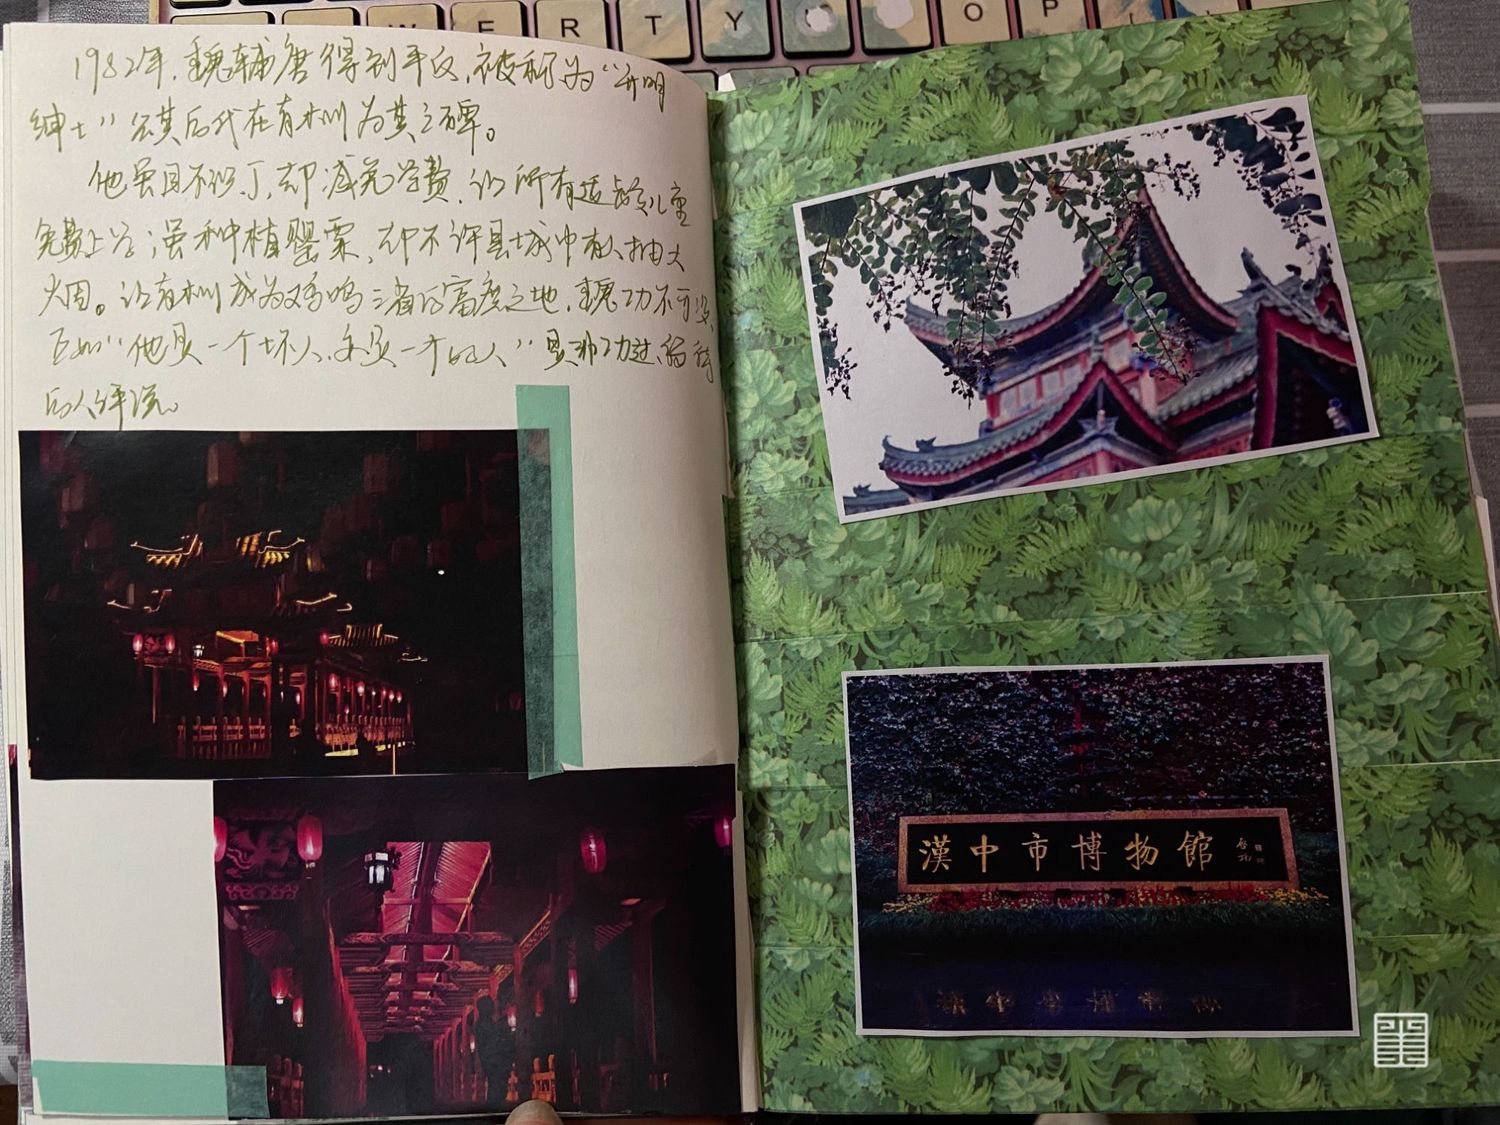 W E R T Y O P
1982年，魏辅唐得到平反，被称为“开明
绅士”，其后代在青木川为其立碑。
他虽目不识丁，却减免学费，让所有适龄儿童
免费上学；虽种植罂粟，却不许县城中有人抽大
烟。让青木川成为鸡鸣三省的富庶之地，魏功不可没，
正如“他是一个坏人，也是一个好人”是非功过，留待
后人评说。
漢中市博物館